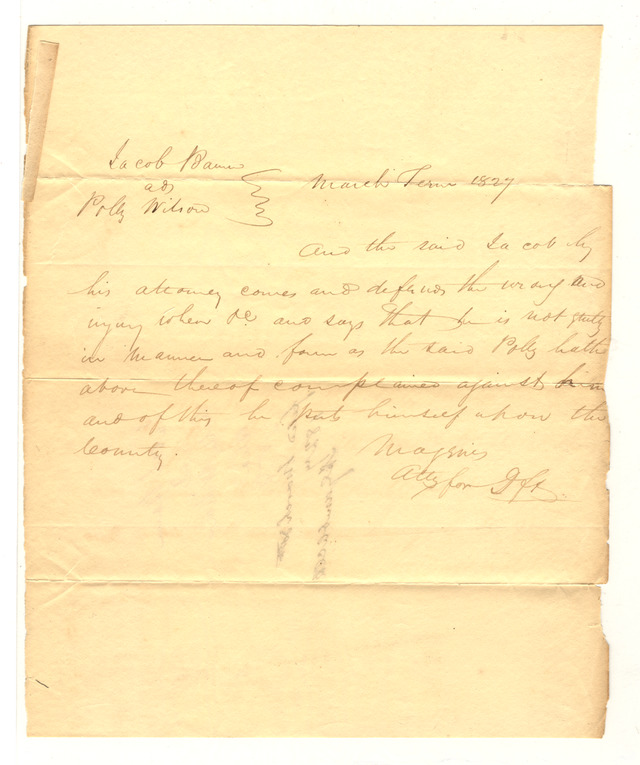 Jacob
ads
Polly Wilson
March Term 1827
And the said Jacob by
his attorney comes and defends the wrong and
injury when &c and says that he is not guilty
in manner and form as the said Polly hath
above thereof complained against him
and of this he puts himself upon the
Country.
Maginis
Atty for Dft